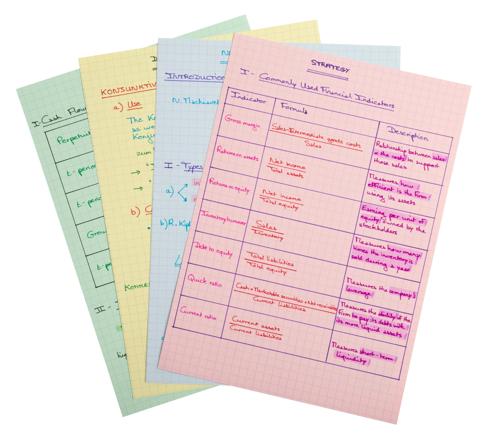 I. Cash Flow
Perpetui
t-perio
t-perio
Grow
t-p
II - I
KONJUNKTIV
a) Use
The K
as we
Konju
zum
b)
Konne
INTRODUCTION
N. Machiavel
I - Types
a)
b) R. Kip
STRATEGY
I - Commonly Used Financial Indicators
Indicator
Formula
Description
Gross margin
Sales-Intermediate goods costs
Sales
Relationship between sales
& the costs to support
those sales
Return on assets
Net income
Total assets
Measures how
efficient is the firm
using its assets
Return on equity
Net income
Total equity
Earning per unit of
equity owned by the
stockholders
Inventory turnover
Sales
Inventory
Measures how many
times the inventory is
sold during a year
Debt to equity
Total liabilities
Total equity
Measures the company's
leverage
Quick ratio
Cash + Marketable securities + Net receivables
Current liabilities
Measures the ability of the
firm to pay its debts with
its more liquid assets
Current ratio
Current assets
Current liabilities
Measures short-term
liquidity